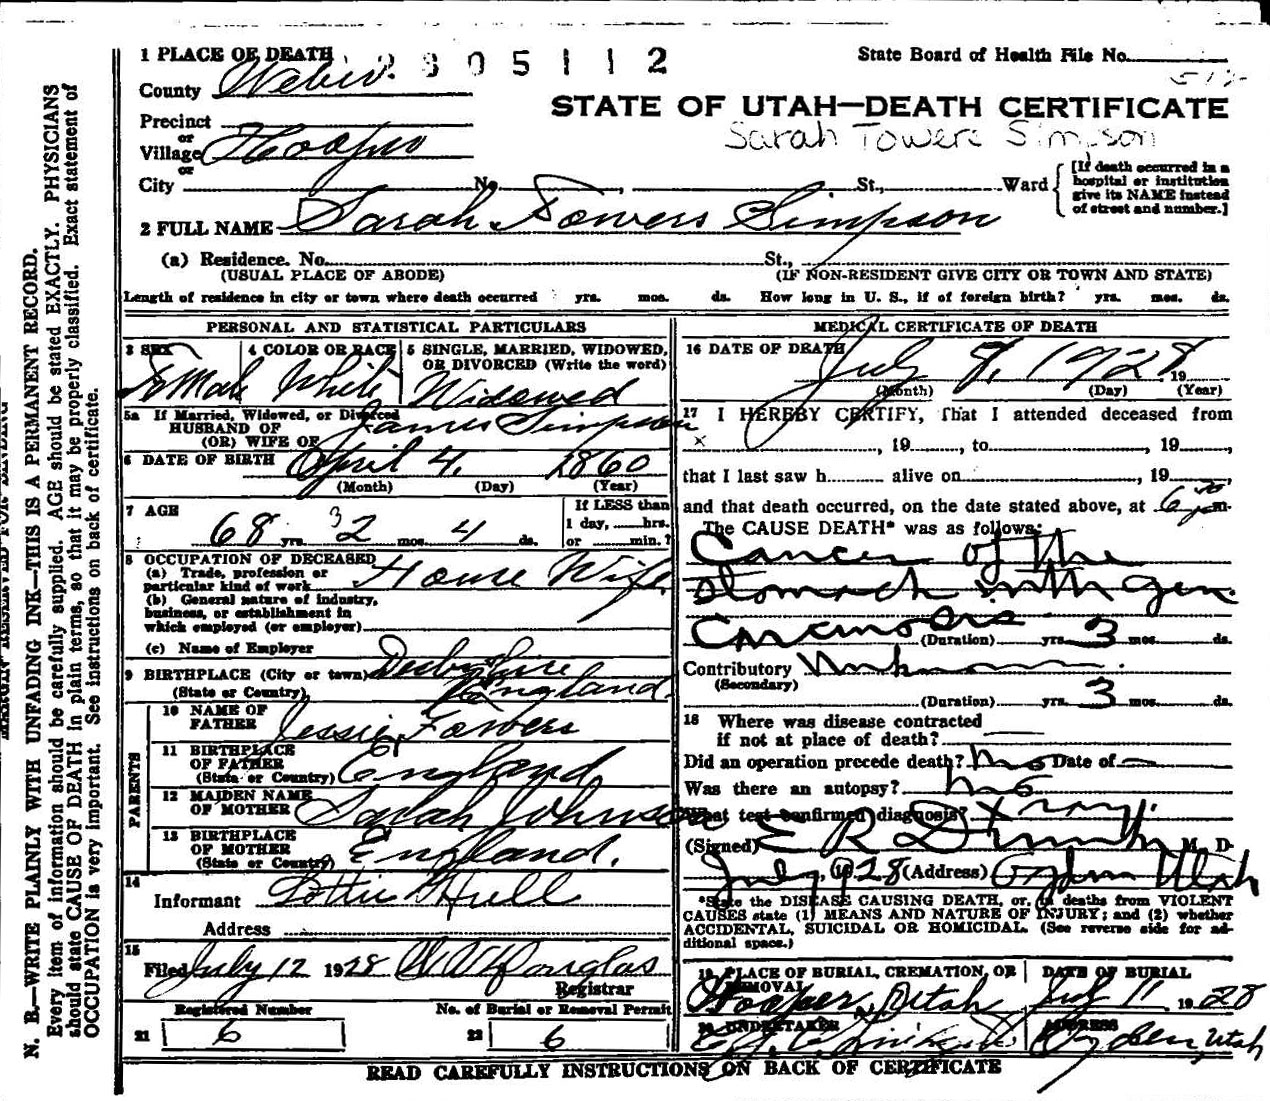 1 PLACE OF DEATH 2805112 State Board of Health File No.
County Weber
STATE OF UTAH—DEATH CERTIFICATE
Precinct
or
Village Hooper
or
Sarah Towers Simpson
City No. St., Ward
[If death occurred in a
hospital or institution
give its NAME instead
of street and number.]
2 FULL NAME Sarah Towers Simpson
(a) Residence. No. St.,
(USUAL PLACE OF ABODE) (IF NON-RESIDENT GIVE CITY OR TOWN AND STATE)
Length of residence in city or town where death occurred yrs. mos. ds. How long in U. S., if of foreign birth? yrs. mos. ds.
PERSONAL AND STATISTICAL PARTICULARS
3 SEX 4 COLOR OR RACE 5 SINGLE, MARRIED, WIDOWED,
OR DIVORCED (Write the word)
White Widowed
5a If Married, Widowed, or Divorced
HUSBAND OF James Simpson
(OR) WIFE OF
6 DATE OF BIRTH April 4, 1860
(Month) (Day) (Year)
7 AGE If LESS than
68 yrs. 3 2 mos. 4 ds. 1 day, hrs.
or min.?
8 OCCUPATION OF DECEASED
(a) Trade, profession or
particular kind of work House Wife
(b) General nature of industry,
business, or establishment in
which employed (or employer)
(c) Name of Employer
9 BIRTHPLACE (City or town) Derbyshire
(State or Country) England
PARENTS
10 NAME OF
FATHER Jessie Towers
11 BIRTHPLACE
OF FATHER
(State or Country) England
12 MAIDEN NAME
OF MOTHER Sarah Johnson
13 BIRTHPLACE
OF MOTHER
(State or Country) England.
14
Informant Lottie Hull
Address
15
Filed July 12 1928 Douglas
Registrar
Registered Number No. of Burial or Removal Permit
21 6 22 6
MEDICAL CERTIFICATE OF DEATH
16 DATE OF DEATH
July 8, 1928 19
(Month) (Day) (Year)
17 I HEREBY CERTIFY, That I attended deceased from
x , 19 , to , 19 ,
that I last saw h alive on , 19 ,
and that death occurred, on the date stated above, at 6 m.
The CAUSE DEATH* was as follows:
Cancer of the
stomach with gen.
(Duration) yrs. 3 mos. ds.
Contributory Unknown
(Secondary)
(Duration) yrs. 3 mos. ds.
18 Where was disease contracted
if not at place of death?
Did an operation precede death? no Date of
Was there an autopsy? no
What test confirmed diagnosis? X ray.
(Signed) E R M. D.
July 9 1928 (Address) Ogden Utah
*State the DISEASE CAUSING DEATH, or, in deaths from VIOLENT
CAUSES state (1) MEANS AND NATURE OF INJURY; and (2) whether
ACCIDENTAL, SUICIDAL OR HOMICIDAL. (See reverse side for ad-
ditional space.)
19 PLACE OF BURIAL, CREMATION, OR DATE OF BURIAL
REMOVAL
Hooper, Utah July 11 1928
20 UNDERTAKER ADDRESS
Ogden, Utah
READ CAREFULLY INSTRUCTIONS ON BACK OF CERTIFICATE
N. B.—WRITE PLAINLY WITH UNFADING INK—THIS IS A PERMANENT RECORD.
Every item of information should be carefully supplied. AGE should be stated EXACTLY. PHYSICIANS
should state CAUSE OF DEATH in plain terms, so that it may be properly classified. Exact statement of
OCCUPATION is very important. See instructions on back of certificate.